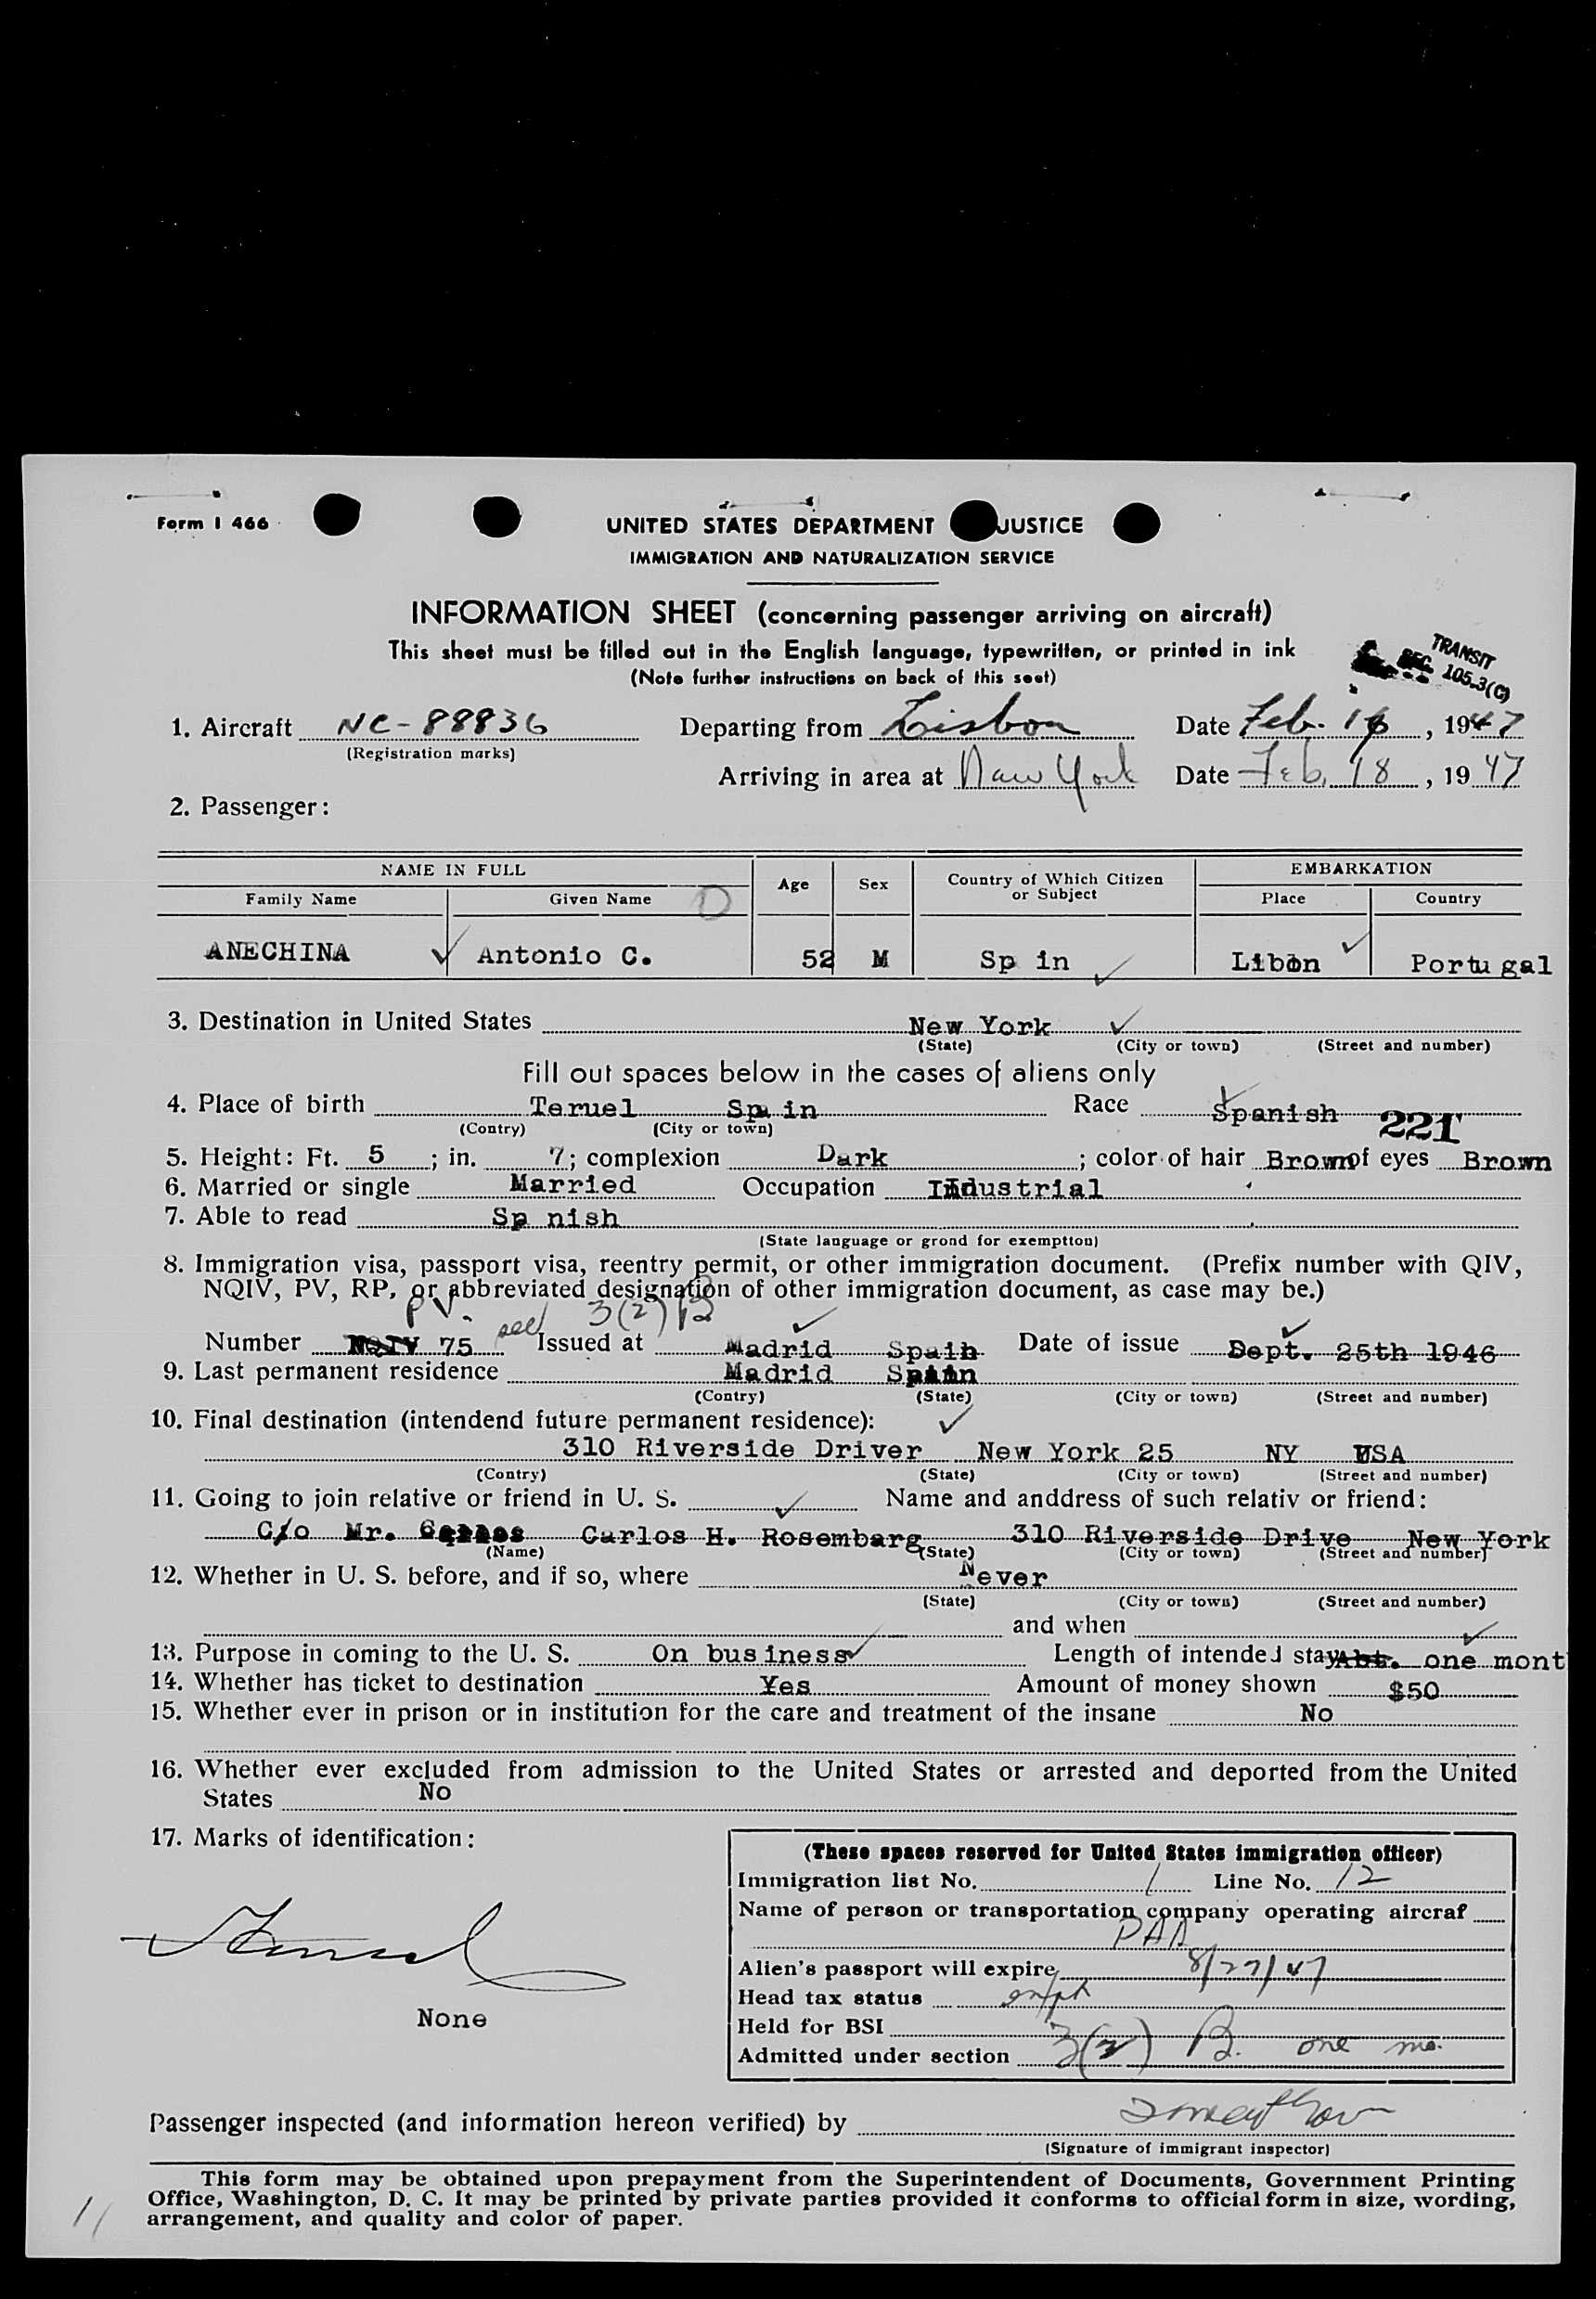 Form I 466
UNITED STATES DEPARTMENT JUSTICE
IMMIGRATION AND NATURALIZATION SERVICE
INFORMATION SHEET (concerning passenger arriving on aircraft)
This sheet must be filled out in the English language, typewritten, or printed in ink
(Note further instructions on back of this seet)
TRANSIT
SEC 105.3(C)
1. Aircraft NC-88836 Departing from Lisbon Date Feb. 16, 1947
(Registration marks)
Arriving in area at New York Date Feb. 18, 1947
2. Passenger:
NAME IN FULL Age Sex Country of Which Citizen or Subject EMBARKATION
Family Name Given Name D Place Country
ANECHINA Antonio C. 52 M Sp in Libon Portu gal
3. Destination in United States New York
(State) (City or town) (Street and number)
Fill out spaces below in the cases of aliens only
4. Place of birth Teruel Spa in Race Spanish 221
(Contry) (City or town)
5. Height: Ft. 5 ; in. 7; complexion Dark ; color of hair Brown of eyes Brown
6. Married or single Married Occupation Industrial
7. Able to read Sp nish
(State language or grond for exemptton)
8. Immigration visa, passport visa, reentry permit, or other immigration document. (Prefix number with QIV,
NQIV, PV, RP, or abbreviated designation of other immigration document, as case may be.)
PV. sec 3(2) B
Number 75 Issued at Madrid Spain Date of issue Dept. 25th 1946
9. Last permanent residence Madrid Spain
(Contry) (State) (City or town) (Street and number)
10. Final destination (intendend future permanent residence):
310 Riverside Driver New York 25 NY USA
(Contry) (State) (City or town) (Street and number)
11. Going to join relative or friend in U. S. Name and anddress of such relativ or friend:
C/o Mr. Carlos H. Rosembarg 310 Riverside Drive New York
(Name) (State) (City or town) (Street and number)
12. Whether in U. S. before, and if so, where Never
(State) (City or town) (Street and number)
and when
13. Purpose in coming to the U. S. On business Length of intended stay Abt. one mont
14. Whether has ticket to destination Yes Amount of money shown $50
15. Whether ever in prison or in institution for the care and treatment of the insane No
16. Whether ever excluded from admission to the United States or arrested and deported from the United
States No
17. Marks of identification:
None
(These spaces reserved for United States immigration officer)
Immigration list No. 1 Line No. 12
Name of person or transportation company operating aircraf
PAA
Alien's passport will expire 8/27/47
Head tax status
Held for BSI
Admitted under section 3(2) B. one mo.
Passenger inspected (and information hereon verified) by
(Signature of immigrant inspector)
This form may be obtained upon prepayment from the Superintendent of Documents, Government Printing
Office, Washington, D. C. It may be printed by private parties provided it conforms to official form in size, wording,
arrangement, and quality and color of paper.
11